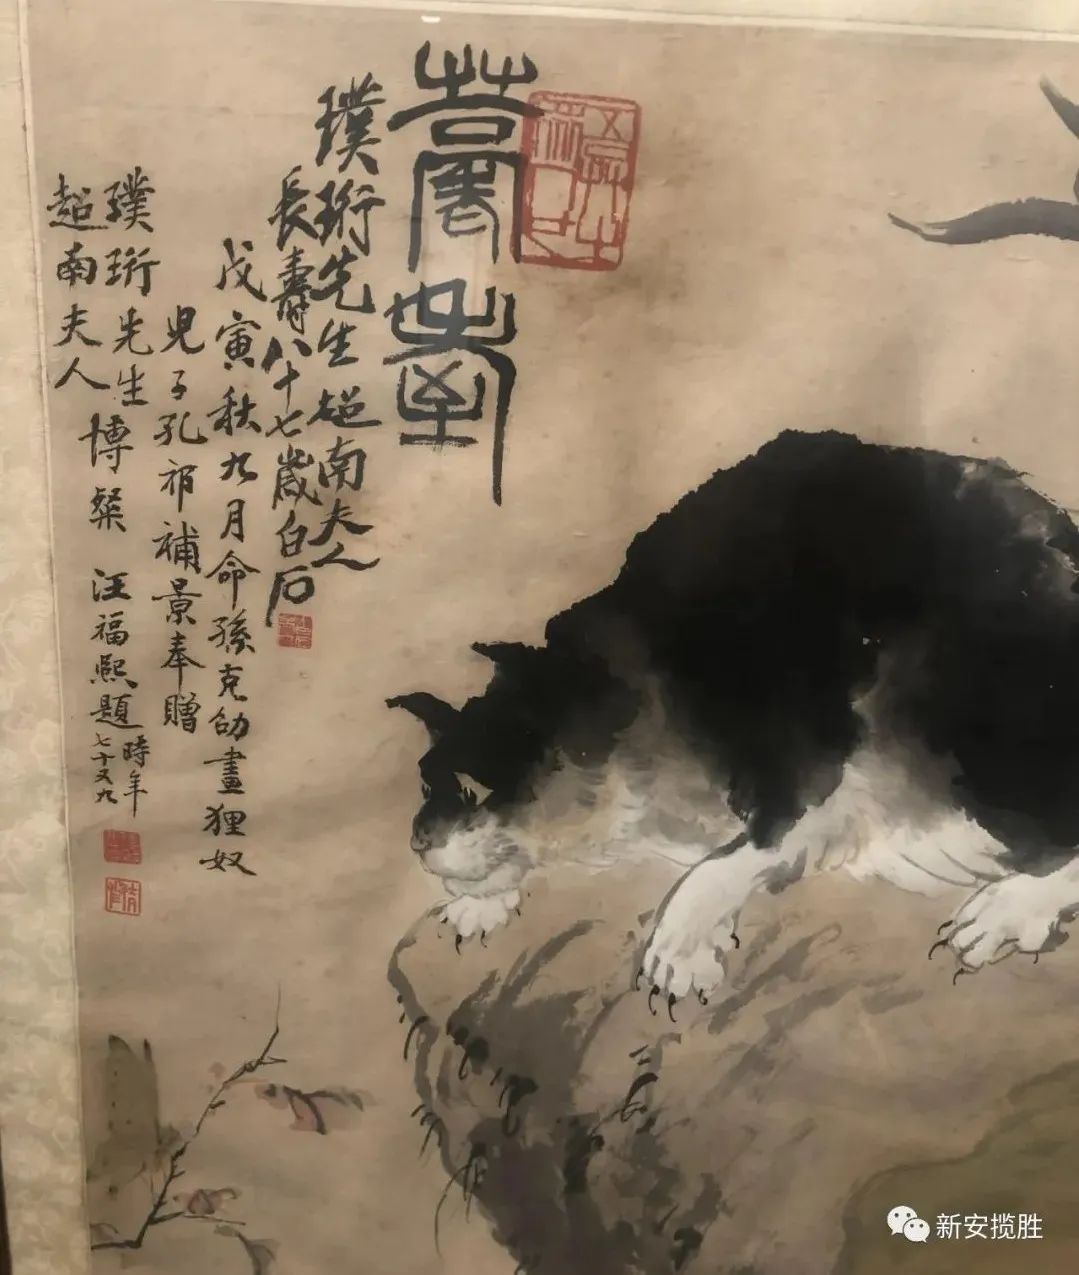 耄耋
璞珩先生超南夫人
長壽 八十七歲白石
戊寅秋九月命孫克劭畫狸奴
兒子孔祁補景奉贈
璞珩先生
超南夫人
博粲 汪福熙題
時年
七十又九
新安揽胜